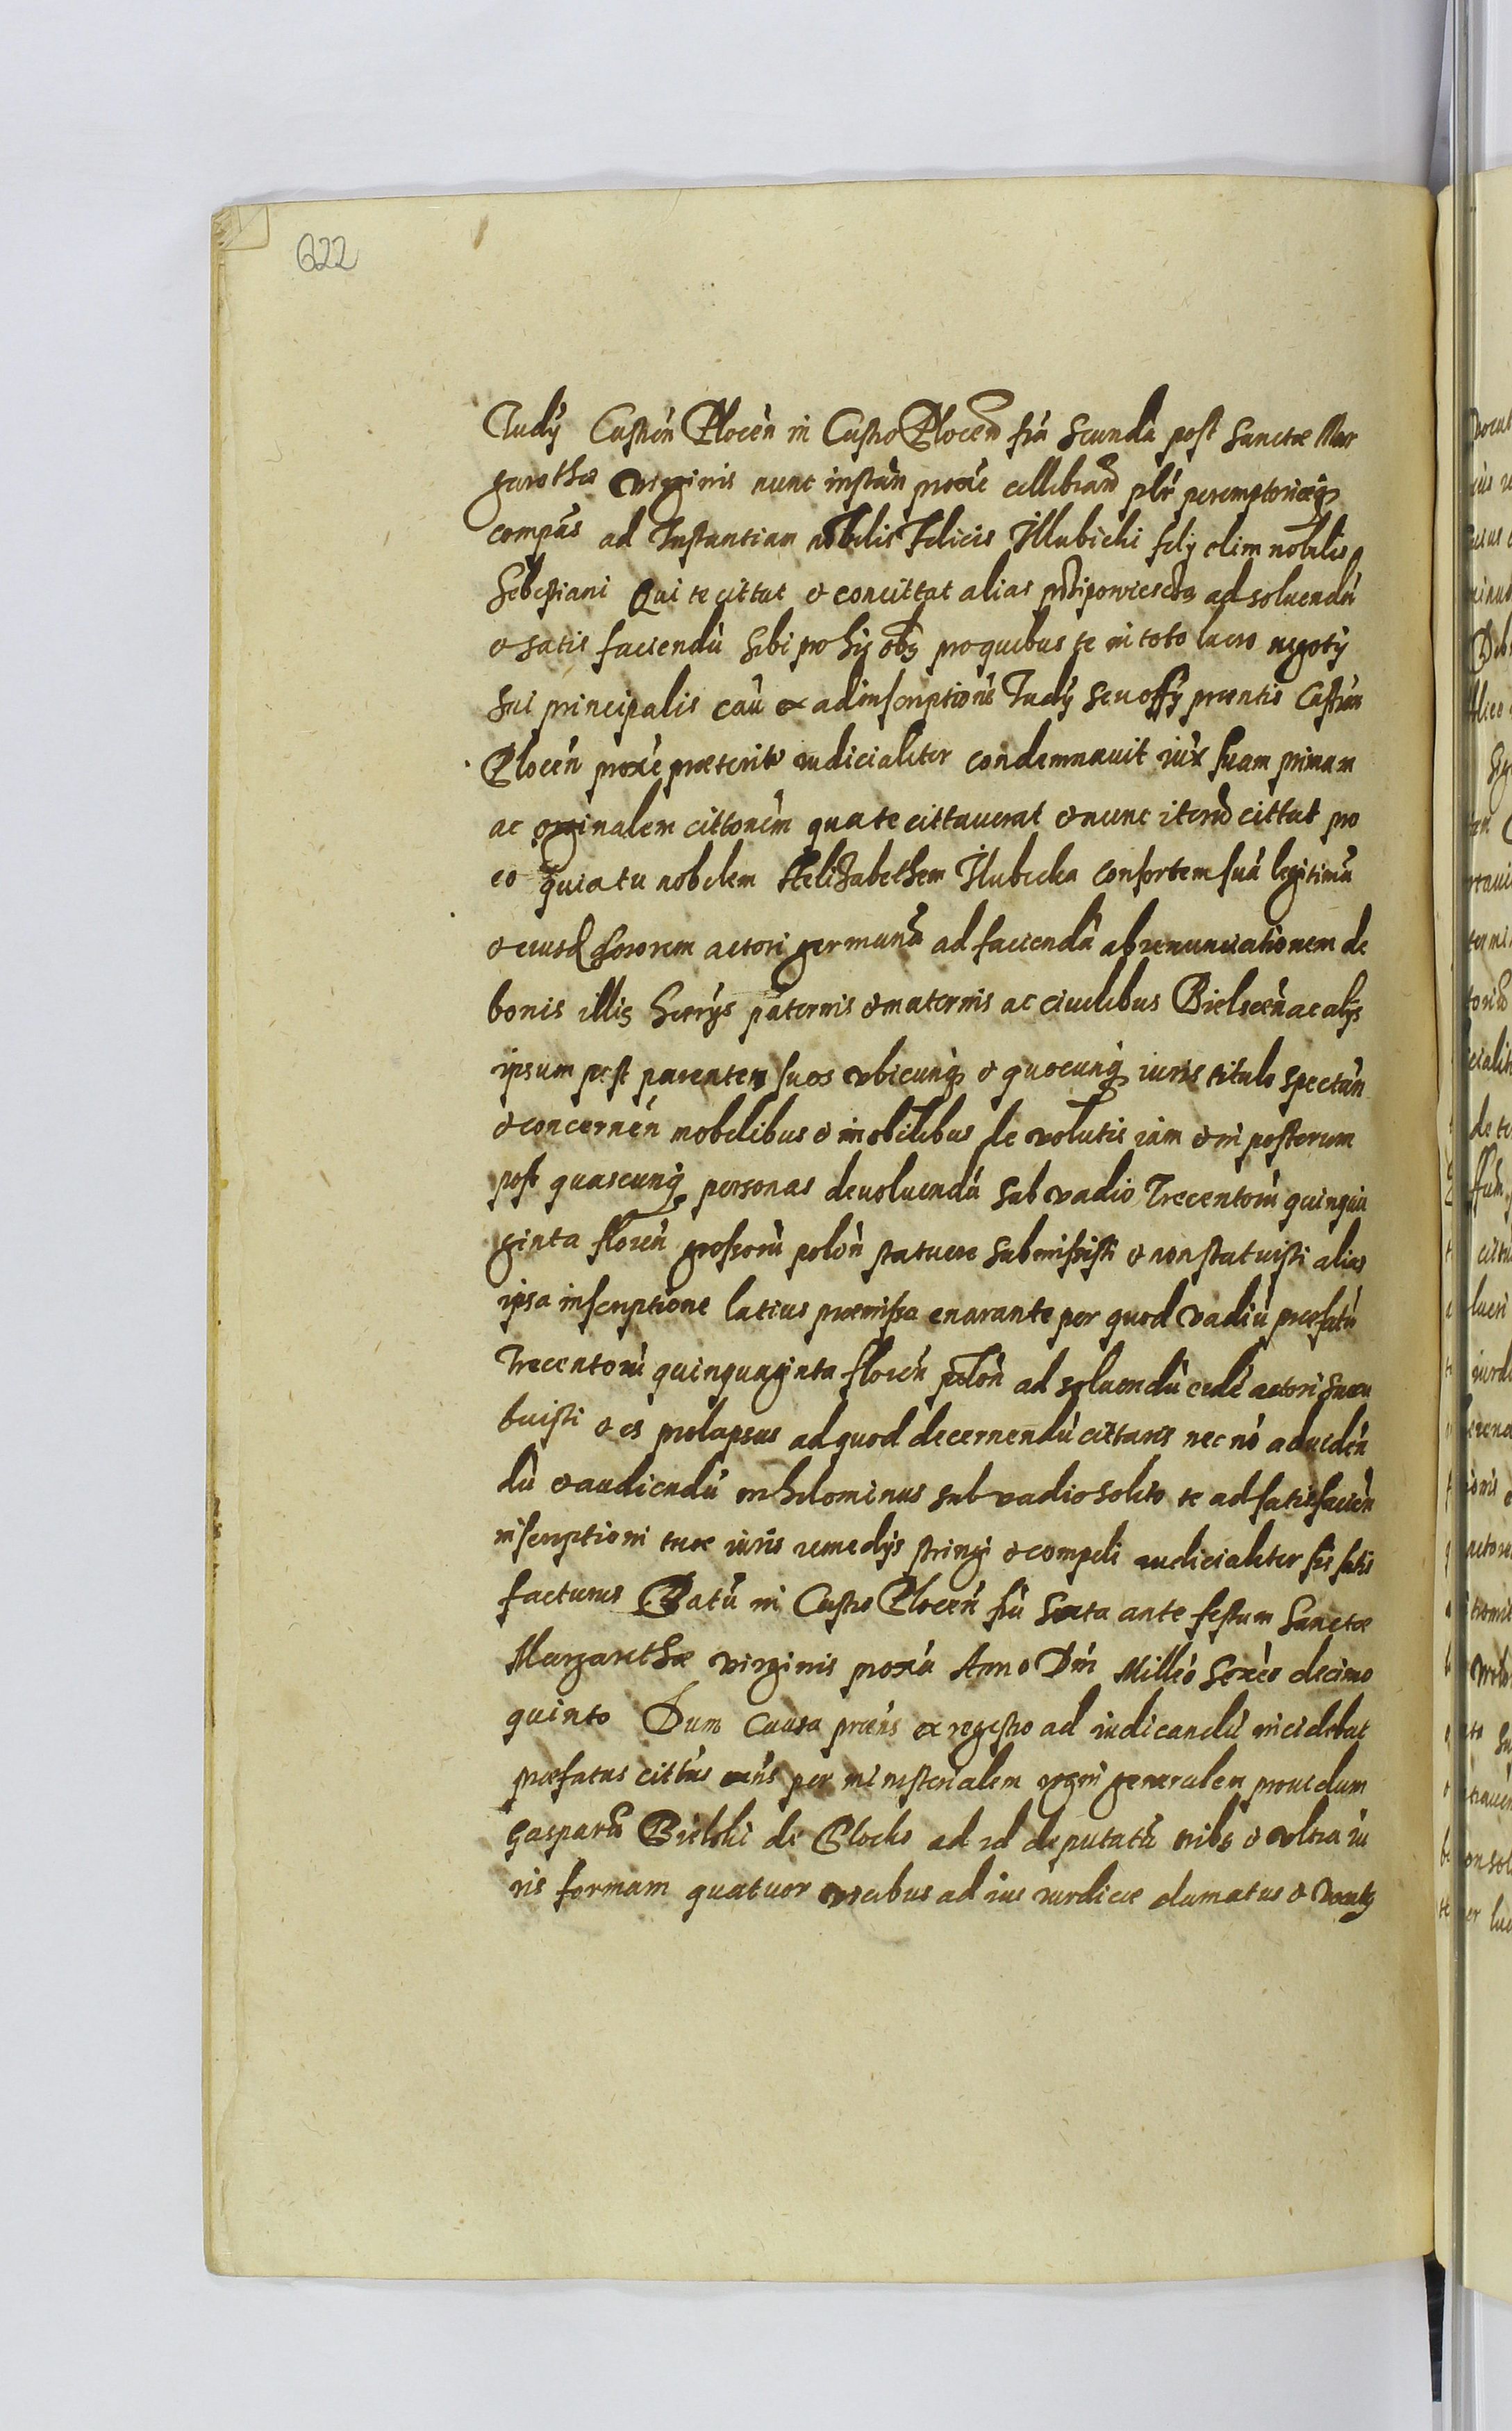 622
Judÿ Castren Plocen in Castro Plocen fia Scunda post Sanctæ Mar
garethæ virginis nunc instan proxe cellebrand plr peremptorieq
compas ad Instantiam nobilis Felicis Illubicki filij olim nobilis
Sebestiani Qui te cittat et concittat alias ad soluendu
et satis faciendu sibi pro hijs obs pro quibus te in toto lucro negotÿ
sui principalis cau ex ad inscriptione Judÿ seu offÿ præntis Castren
Plocen proxe præterito iudicialiter condemnauit iux suam primam
ac originalem cittonem qua te cittauerat et nunc iterum cittat pro
eo quia tu nobilem Helizabethem Ilubicka consortem suā legitimā
et eiusd sororem actori germanā ad faciendā abrenunciationem de
bonis illis hærijs paternis et maternis ac ciuilibus Bielscen ac alijs
ipsum post parentem suos vbicunq et quocunq iuris titulo spectan
et concernen nobilibus et inobilibus de volutis iam et in posterum
post quascunq personas deuoluendā sub vadio Trecentorū quinqua
ginta floren grossorū polon statuere submisisti et non statuisti alias
ipsa inscriptione latius præmissa enarante per quod vadiū præfatū
Trecentorū quinquaginta floren polon ad soluendū cede actori succu
buisti et es prolapsus ad quod decernendū cittaris nec nō ad uiden
dū et audiendū nihilominus sub vadio solito te ad satisfacien
inscriptioni tuæ iuris remedÿs stringi et compeli iudicialiter sis satis
facturus Datū in Castro Plocen fia Sexta ante festum Sanctæ
Margarethæ virginis proxa Anno Dni Milleo Sexceo decimo
quinto Dum Causa præns ex regestro ad iudicandū incidebat
præfatus cittus per ministerialem regni generalem prouidum
Gasparū Bielski de Plocko ad id deputatū tribs et vltra iu
ris formam quatuor vocibus ad ius iurdicie clamatus et